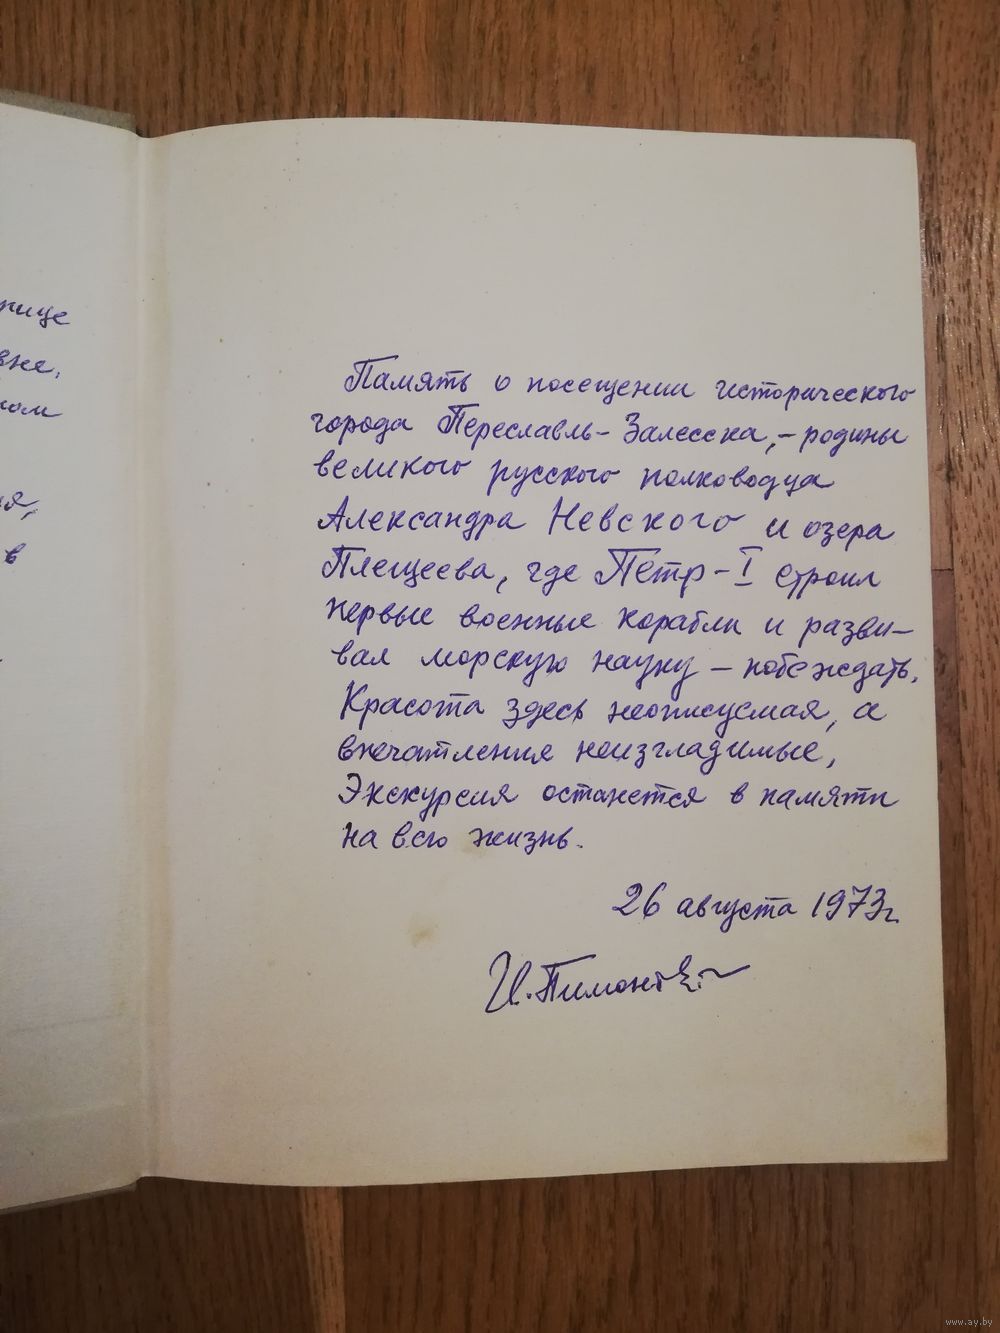 рице
вне,
ном
ия,
в
Память о посещении исторического
города Переславль-Залесска,-родины
великого русского полководца
Александра Невского и озера
Плещеева, где Петр-I строил
первые военные корабли и разви-
вал морскую науку - побеждать.
Красота здесь неописуемая, а
впечатления неизгладимые,
Экскурсия останется в памяти
на всю жизнь.
26 августа 1973г.
www.ay.by